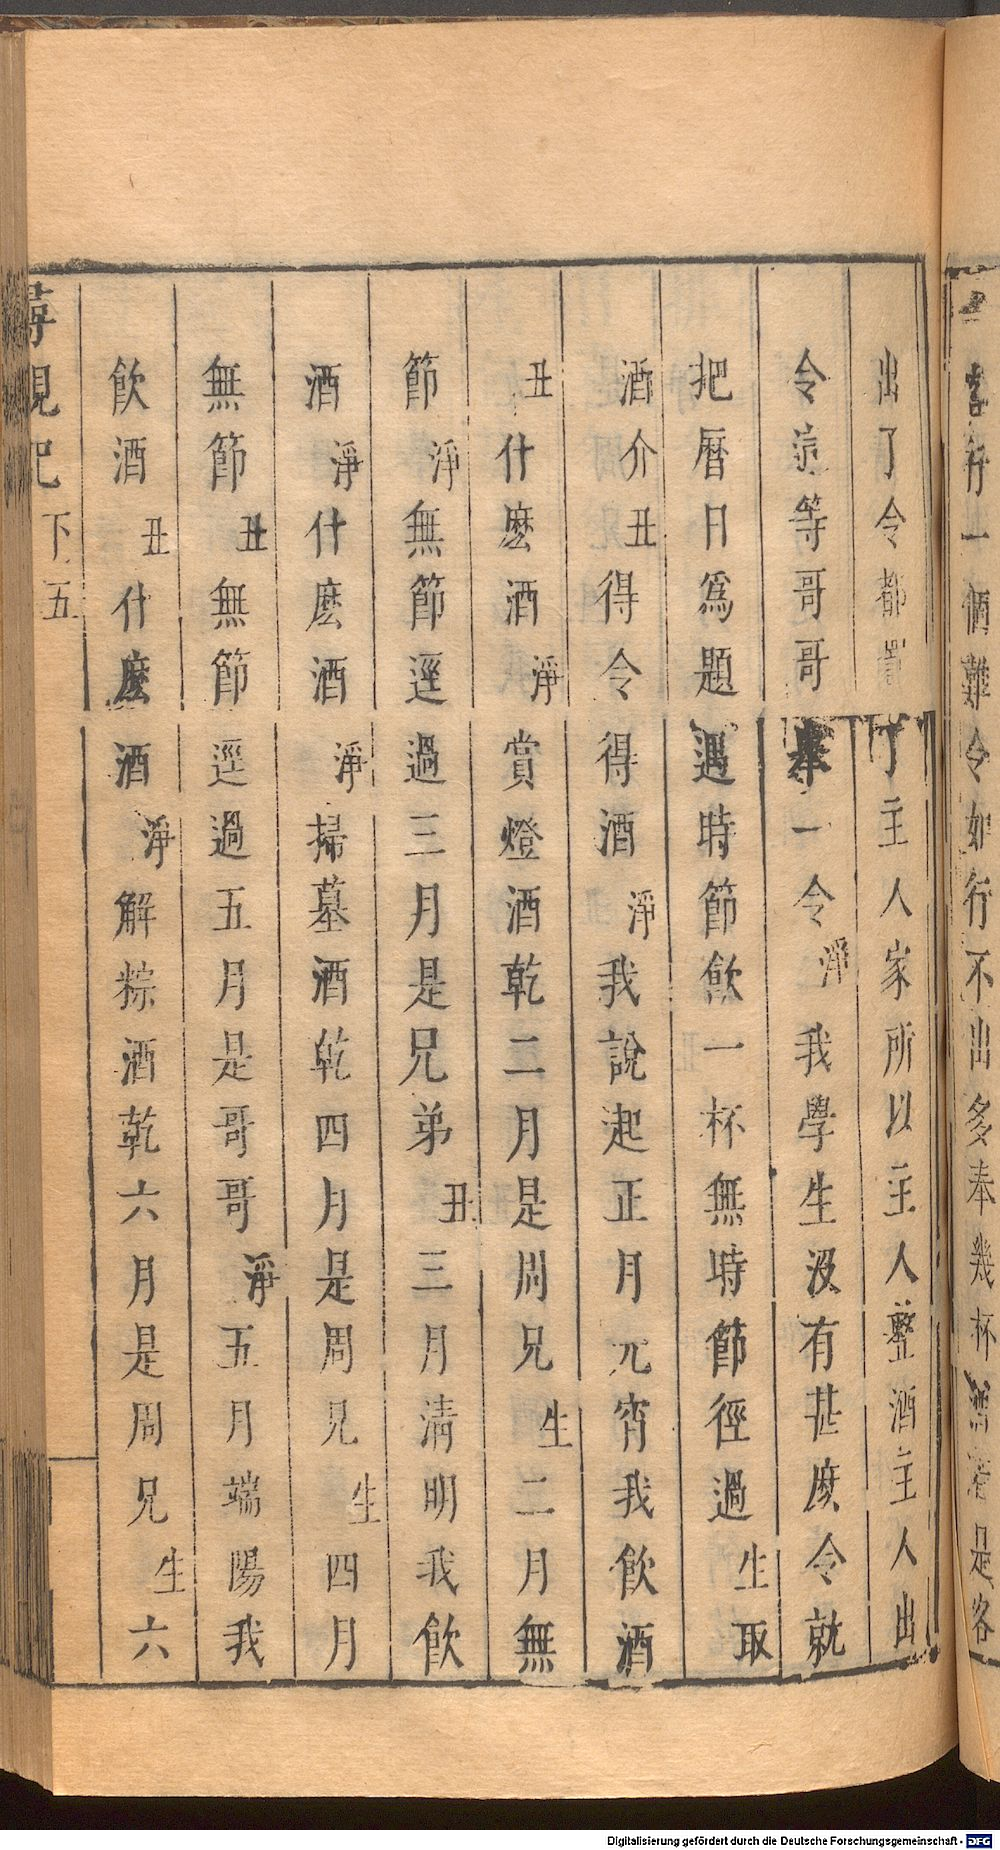 行一個難令如行不出多奉幾杯酒是客
出了令都罰了主人家所以主人整酒主人出
令這等哥哥奉一令淨我學生沒有甚麼令就
把曆日爲題遇時節飲一杯無時節徑過生取
酒介丑得令得酒淨我說起正月元宵我飲酒
丑什麽酒淨賞燈酒乾二月是周兄生二月無
節淨無節逕過三月是兄弟丑三月清明我飲
酒淨什麽酒淨掃墓酒乾四月是周兄生四月
無節丑無節逕過五月是哥哥淨五月端陽我
飲酒丑什麽酒淨解粽酒乾六月是周兄生六
尋親記 下 五
Digitalisierung gefördert durch die Deutsche Forschungsgemeinschaft - DFG